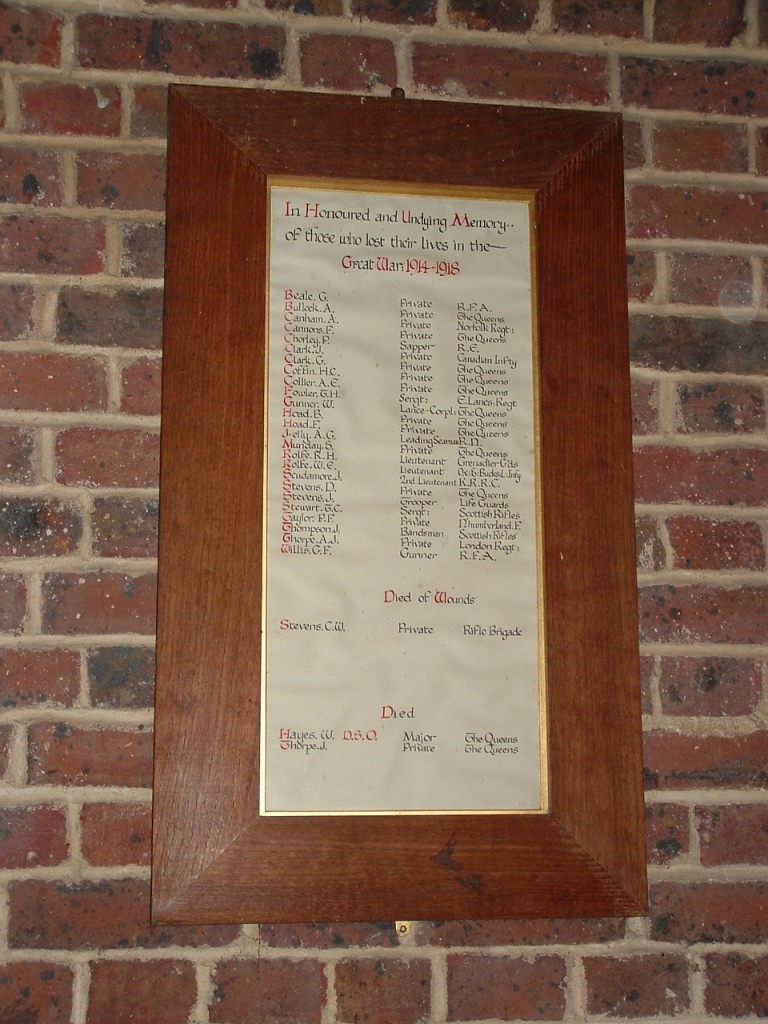 In Honoured and Undying Memory..
of those who lost their lives in the—
Great War: 1914-1918
Beale. G. Private R.F.A.
Bullock. A. Private The Queens
Canham. A. Private Norfolk Regt:
Cannons. F. Private The Queens
Chorley. P. Sapper R.E.
Clark. J. Private Canadian Infty
Clark. G. Private The Queens
Coffin. H.C. Private The Queens
Collier. A.E. Private The Queens
Fowler. T.H. Sergt: E. Lancs: Regt
Gunner. W. Lance-Corpl: The Queens
Hoad. B. Private The Queens
Hoad. F. Private The Queens
Jelly. A.G. Leading Seaman R.N.
Munday. S. Private The Queens
Rolfe. R.H. Lieutenant Grenadier Gds
Rolfe. W.E. Lieutenant Ox: & Bucks L: Infy
Scudamore. J. 2nd Lieutenant K.R.R.C.
Stevens. D. Private The Queens
Stevens. J. Trooper Life Guards
Stewart. T.C. Sergt: Scottish Rifles
Taylor. P.F. Private Nhumberland. F.
Thompson. J. Bandsman Scottish Rifles
Thorpe. A.J. Private London Regt:
Willis. G.F. Gunner R.F.A.
Died of Wounds
Stevens. C.W. Private Rifle Brigade
Died
Hayes. W. D.S.O. Major The Queens
Thorpe. J. Private The Queens